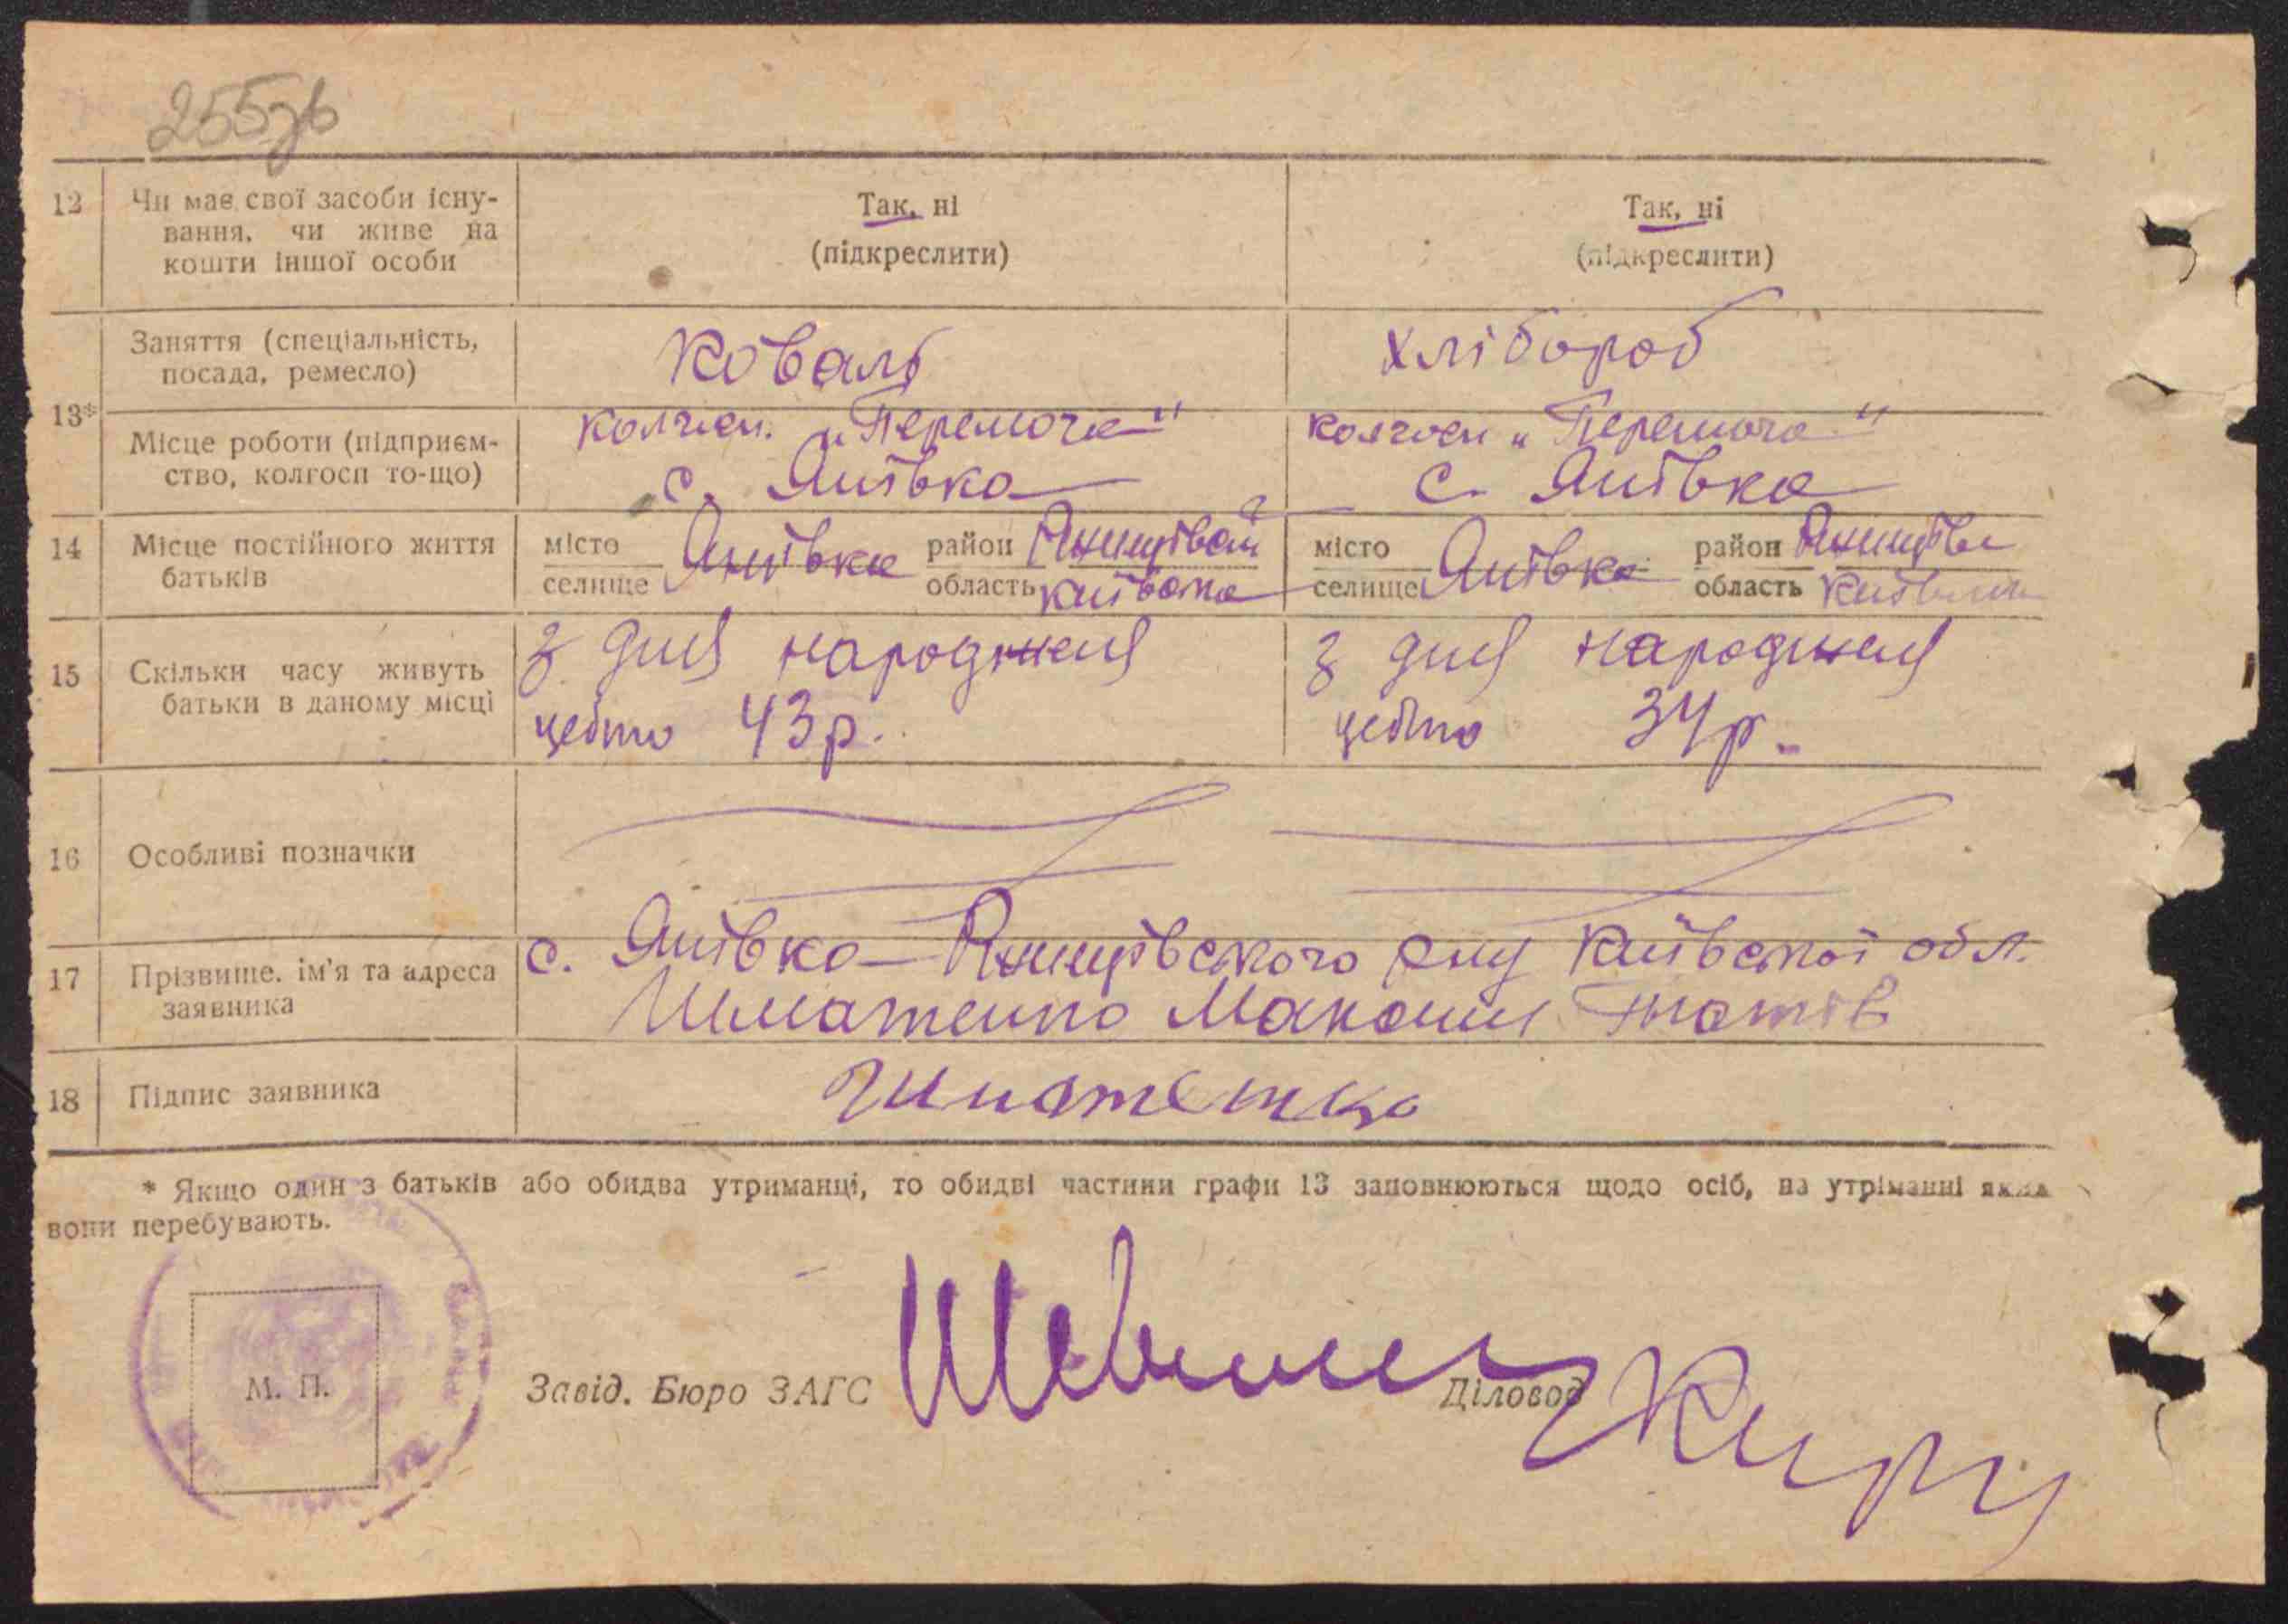 255зв
12 Чи має свої засоби існу- Так, ні Так, ні
вання, чи живе на (підкреслити) (підкреслити)
кошти іншої особи
13* Заняття (спеціальність, Коваль Хлібороб
посада, ремесло)
Місце роботи (підприєм- колгосп. „Перемога" колгосп „Перемога"
ство, колгосп то-що) с. Янівка с. Янівка
14 Місце постійного життя місто Янівка район місто Янівка район
батьків селище область Київська селище область
15 Скільки часу живуть з дня народження з дня народження
батьки в даному місці цебто 43 р. цебто 34 р.
16 Особливі позначки
17 Прізвище. ім'я та адреса с. Янівка рну Київської обл.
заявника Шматенко
18 Підпис заявника Шматенко
* Якщо один з батьків або обидва утриманці, то обидві частини графи 13 заповнюються щодо осіб, на утріманні яких
вони перебувають.
М. П.
Завід. Бюро ЗАГС Діловод